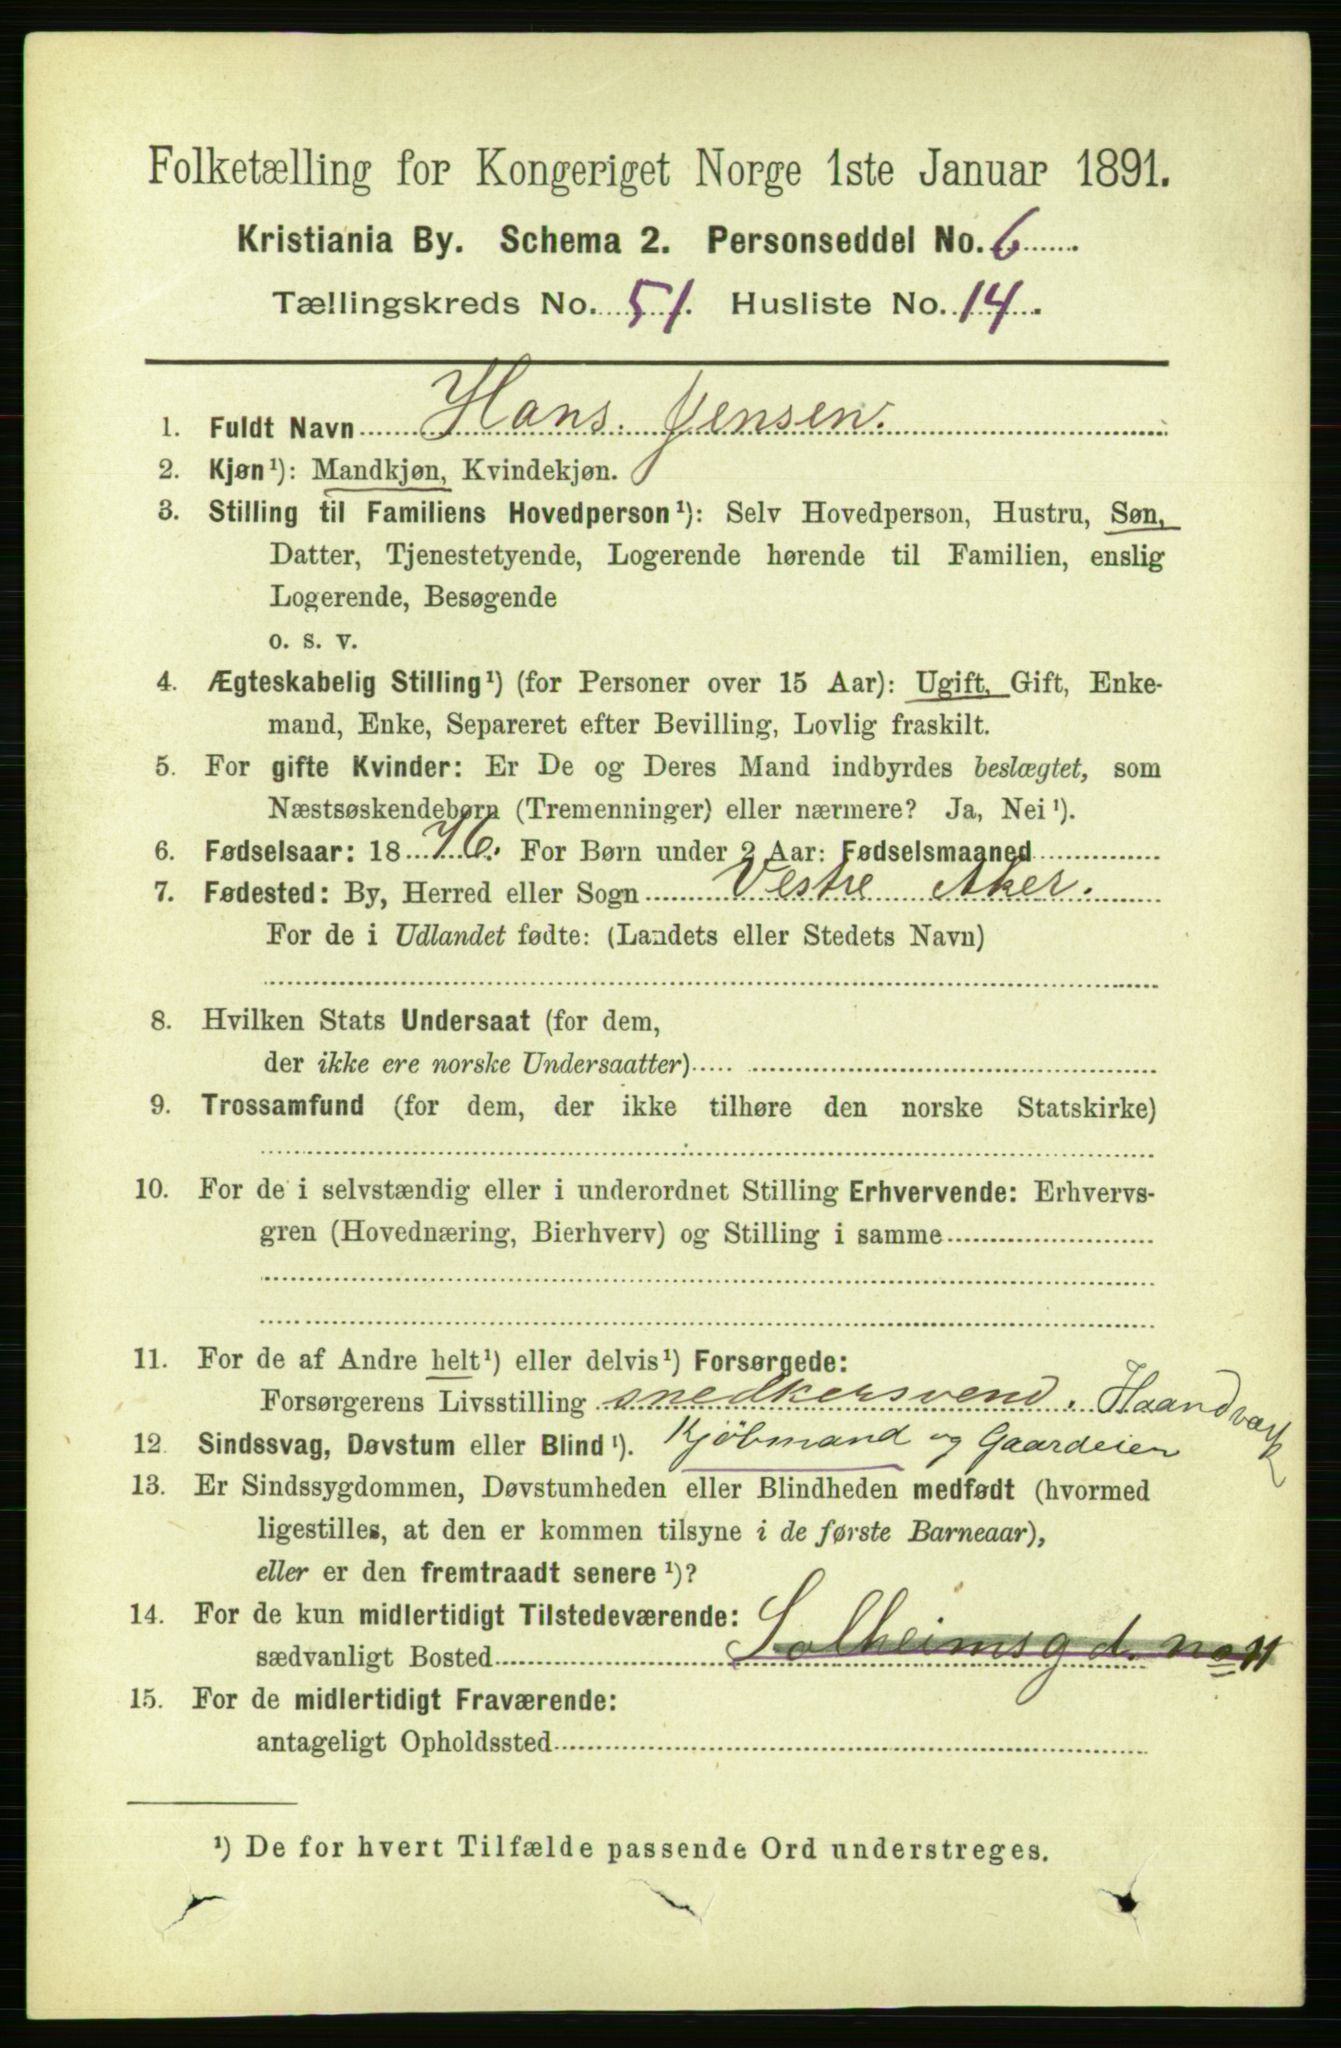 Folketælling for Kongeriget Norge 1ste Januar 1891.
Kristiania By. Schema 2. Personseddel No. 6
Tællingskreds No. 51. Husliste No. 14.
1. Fuldt Navn Hans Jensen.
2. Kjøn¹): Mandkjøn, Kvindekjøn.
3. Stilling til Familiens Hovedperson¹): Selv Hovedperson, Hustru, Søn,
Datter, Tjenestetyende, Logerende hørende til Familien, enslig
Logerende, Besøgende
o. s. v.
4. Ægteskabelig Stilling¹) (for Personer over 15 Aar): Ugift, Gift, Enke-
mand, Enke, Separeret efter Bevilling, Lovlig fraskilt.
5. For gifte Kvinder: Er De og Deres Mand indbyrdes beslægtet, som
Næstsøskendebørn (Tremenninger) eller nærmere? Ja, Nei¹).
6. Fødselsaar: 1876. For Børn under 2 Aar: Fødselsmaaned
7. Fødested: By, Herred eller Sogn Vestre Aker.
For de i Udlandet fødte: (Landets eller Stedets Navn)
8. Hvilken Stats Undersaat (for dem,
der ikke ere norske Undersaatter)
9. Trossamfund (for dem, der ikke tilhøre den norske Statskirke)
10. For de i selvstændig eller i underordnet Stilling Erhvervende: Erhvervs-
gren (Hovednæring, Bierhverv) og Stilling i samme
11. For de af Andre helt¹) eller delvis¹) Forsørgede:
Forsørgerens Livsstilling snedkersvend. Haandværk
Kjöbmand og Gaardeier
12. Sindssvag, Døvstum eller Blind¹).
13. Er Sindssygdommen, Døvstumheden eller Blindheden medfødt (hvormed
ligestilles, at den er kommen tilsyne i de første Barneaar),
eller er den fremtraadt senere¹)?
14. For de kun midlertidigt Tilstedeværende:
sædvanligt Bosted Solheimsgd. no 11
15. For de midlertidigt Fraværende:
antageligt Opholdssted
¹) De for hvert Tilfælde passende Ord understreges.